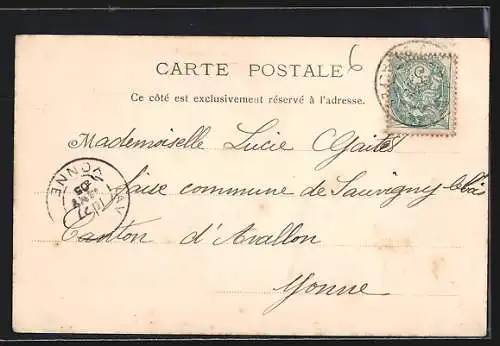 6
CARTE POSTALE
Ce côté est exclusivement réservé à l'adresse.
Mademoiselle Lucie
commune de Sauvigny le bois
Canton d'Avallon
Yonne
YONNE
05